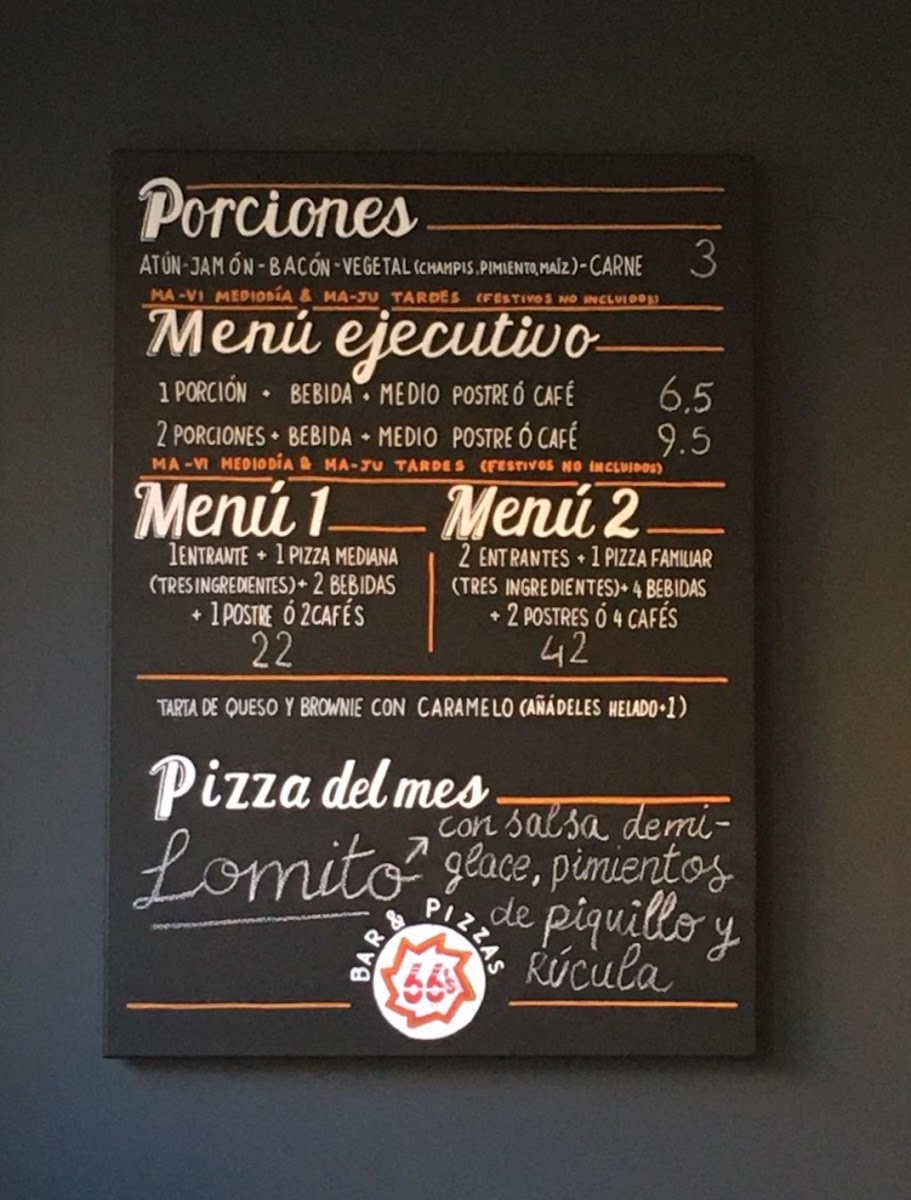 Porciones
ATÚN-JAMÓN-BACÓN-VEGETAL (CHAMPIS, PIMIENTO, MAÍZ)-CARNE 3
MA-VI MEDIODÍA & MA-JU TARDES (FESTIVOS NO INCLUIDOS)
Menú ejecutivo
1 PORCIÓN + BEBIDA + MEDIO POSTRE Ó CAFÉ 6.5
2 PORCIONES + BEBIDA + MEDIO POSTRE Ó CAFÉ 9.5
MA-VI MEDIODÍA & MA-JU TARDES (FESTIVOS NO INCLUIDOS)
Menú 1
1 ENTRANTE + 1 PIZZA MEDIANA
(TRES INGREDIENTES) + 2 BEBIDAS
+ 1 POSTRE Ó 2 CAFÉS
22
Menú 2
2 ENTRANTES + 1 PIZZA FAMILIAR
(TRES INGREDIENTES) + 4 BEBIDAS
+ 2 POSTRES Ó 4 CAFÉS
42
TARTA DE QUESO Y BROWNIE CON CARAMELO (AÑÁDELES HELADO+1)
Pizza del mes
Lomito
con salsa demi-
glace, pimientos
de piquillo y
RÚCULA
BAR & PIZZAS
66's